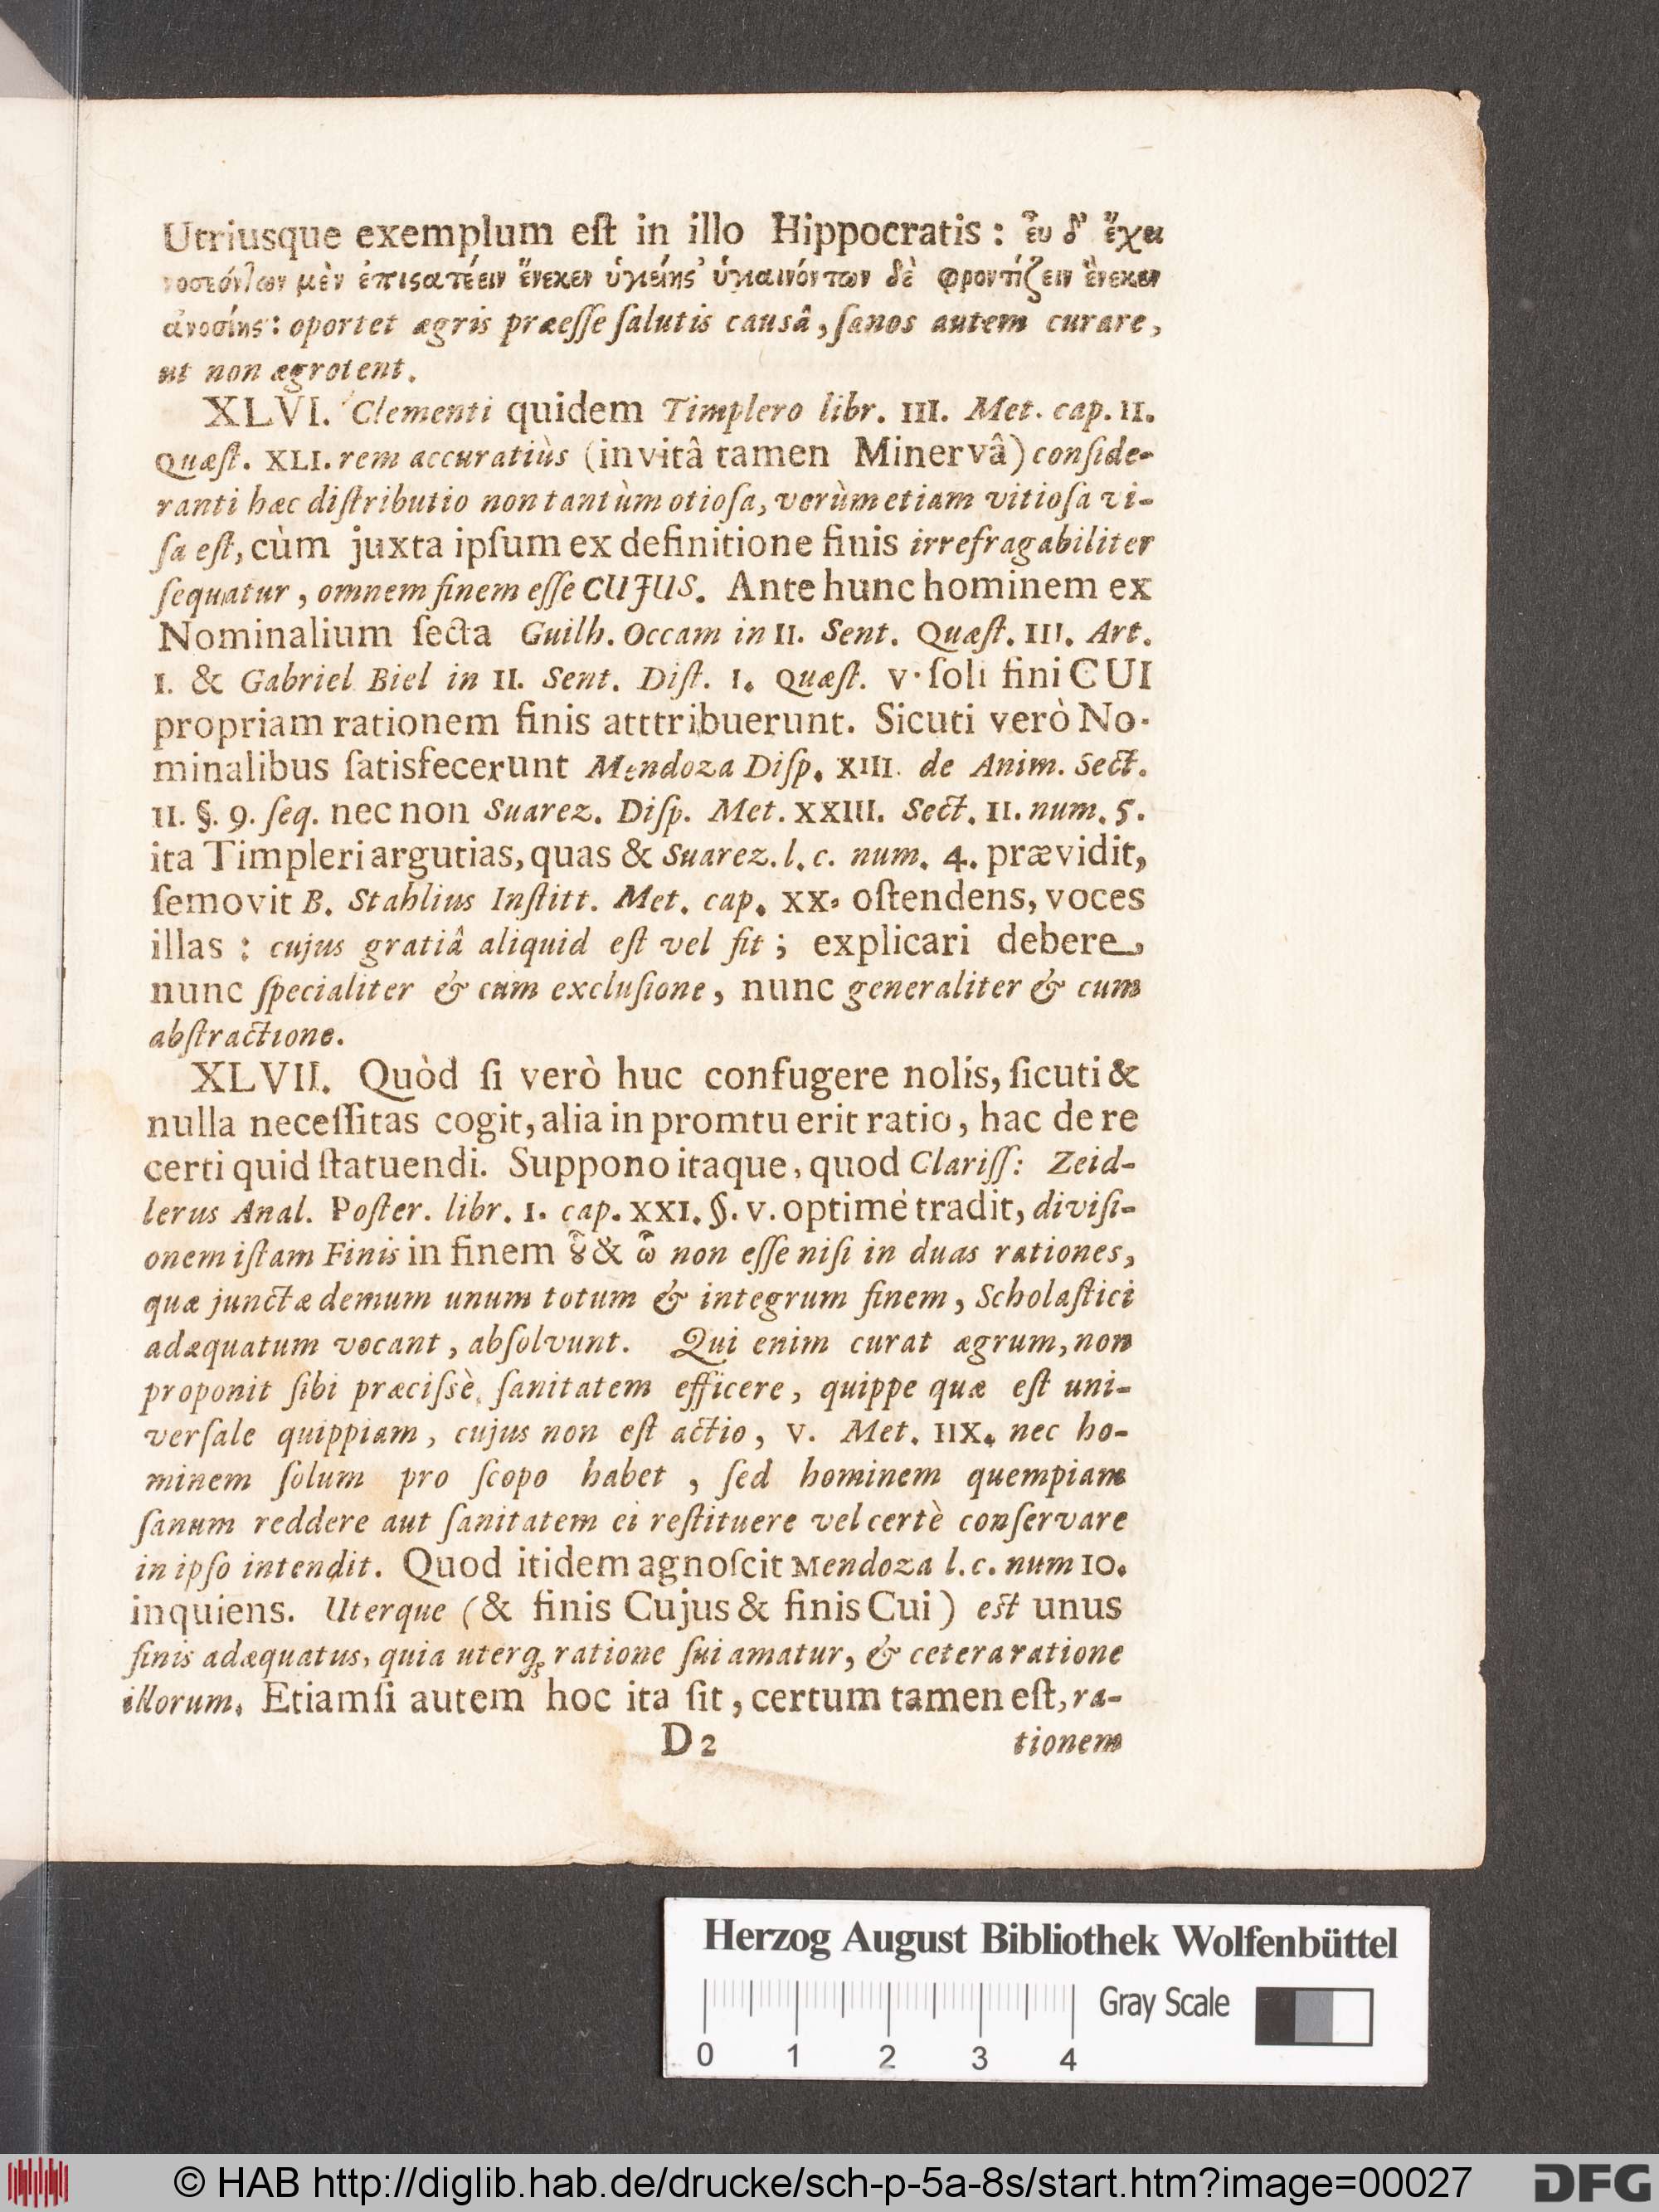 Utriusque exemplum eſt in illo Hippocratis: εὖ δ' ἔχει
νοσεόντων μὲν ἐπιϛατέειν ἕνεκεν ὑγιείης· ὑγιαινόντων δὲ φροντίζειν ἕνεκεν
ἀνοσίης: oportet ægris præeſſe ſalutis causâ, ſanos autem curare,
ut non ægrotent.
XLVI. Clementi quidem Timplero libr. III. Met. cap. II.
Quæſt. XLI. rem accuratiùs (invitâ tamen Minervâ) conſide-
ranti hæc diſtributio non tantùm otioſa, verùm etiam vitioſa vi-
ſa eſt, cùm juxta ipſum ex definitione finis irrefragabiliter
ſequatur, omnem finem eſſe CUJUS. Ante hunc hominem ex
Nominalium ſecta Guilh. Occam in II. Sent. Quæſt. III. Art.
I. & Gabriel Biel in II. Sent. Diſt. I. Quæſt. V. ſoli fini CUI
propriam rationem finis atttribuerunt. Sicuti verò No-
minalibus ſatisfecerunt Mendoza Diſp. XIII. de Anim. Sect.
II. §. 9. ſeq. nec non Suarez. Diſp. Met. XXIII. Sect. II. num. 5.
ita Timpleri argutias, quas & Suarez. l. c. num. 4. prævidit,
ſemovit B. Stahlius Inſtitt. Met. cap. XX. oſtendens, voces
illas: cujus gratiâ aliquid eſt vel fit; explicari debere,
nunc ſpecialiter & cum excluſione, nunc generaliter & cum
abſtractione.
XLVII. Quòd ſi verò huc confugere nolis, ſicuti &
nulla neceſſitas cogit, alia in promtu erit ratio, hac de re
certi quid ſtatuendi. Suppono itaque, quod Clariſſ: Zeid-
lerus Anal. Poſter. libr. I. cap. XXI. §. V. optimè tradit, diviſi-
onem iſtam Finis in finem ȣ̃ & ᾧ non eſſe niſi in duas rationes,
quæ junctæ demum unum totum & integrum finem, Scholaſtici
adæquatum vocant, abſolvunt. Qui enim curat ægrum, non
proponit ſibi præciſsè ſanitatem efficere, quippe quæ eſt uni-
verſale quippiam, cujus non eſt actio, V. Met. IIX. nec ho-
minem ſolum pro ſcopo habet, ſed hominem quempiam
ſanum reddere aut ſanitatem ei reſtituere vel certè conſervare
in ipſo intendit. Quod itidem agnoſcit Mendoza l. c. num 10.
inquiens. Uterque (& finis Cujus & finis Cui) eſt unus
finis adæquatus, quia uterq; ratione ſui amatur, & cetera ratione
illorum. Etiamſi autem hoc ita ſit, certum tamen eſt, ra-
D 2 tionem
Herzog August Bibliothek Wolfenbüttel
Gray Scale
0 1 2 3 4
© HAB http://diglib.hab.de/drucke/sch-p-5a-8s/start.htm?image=00027
DFG